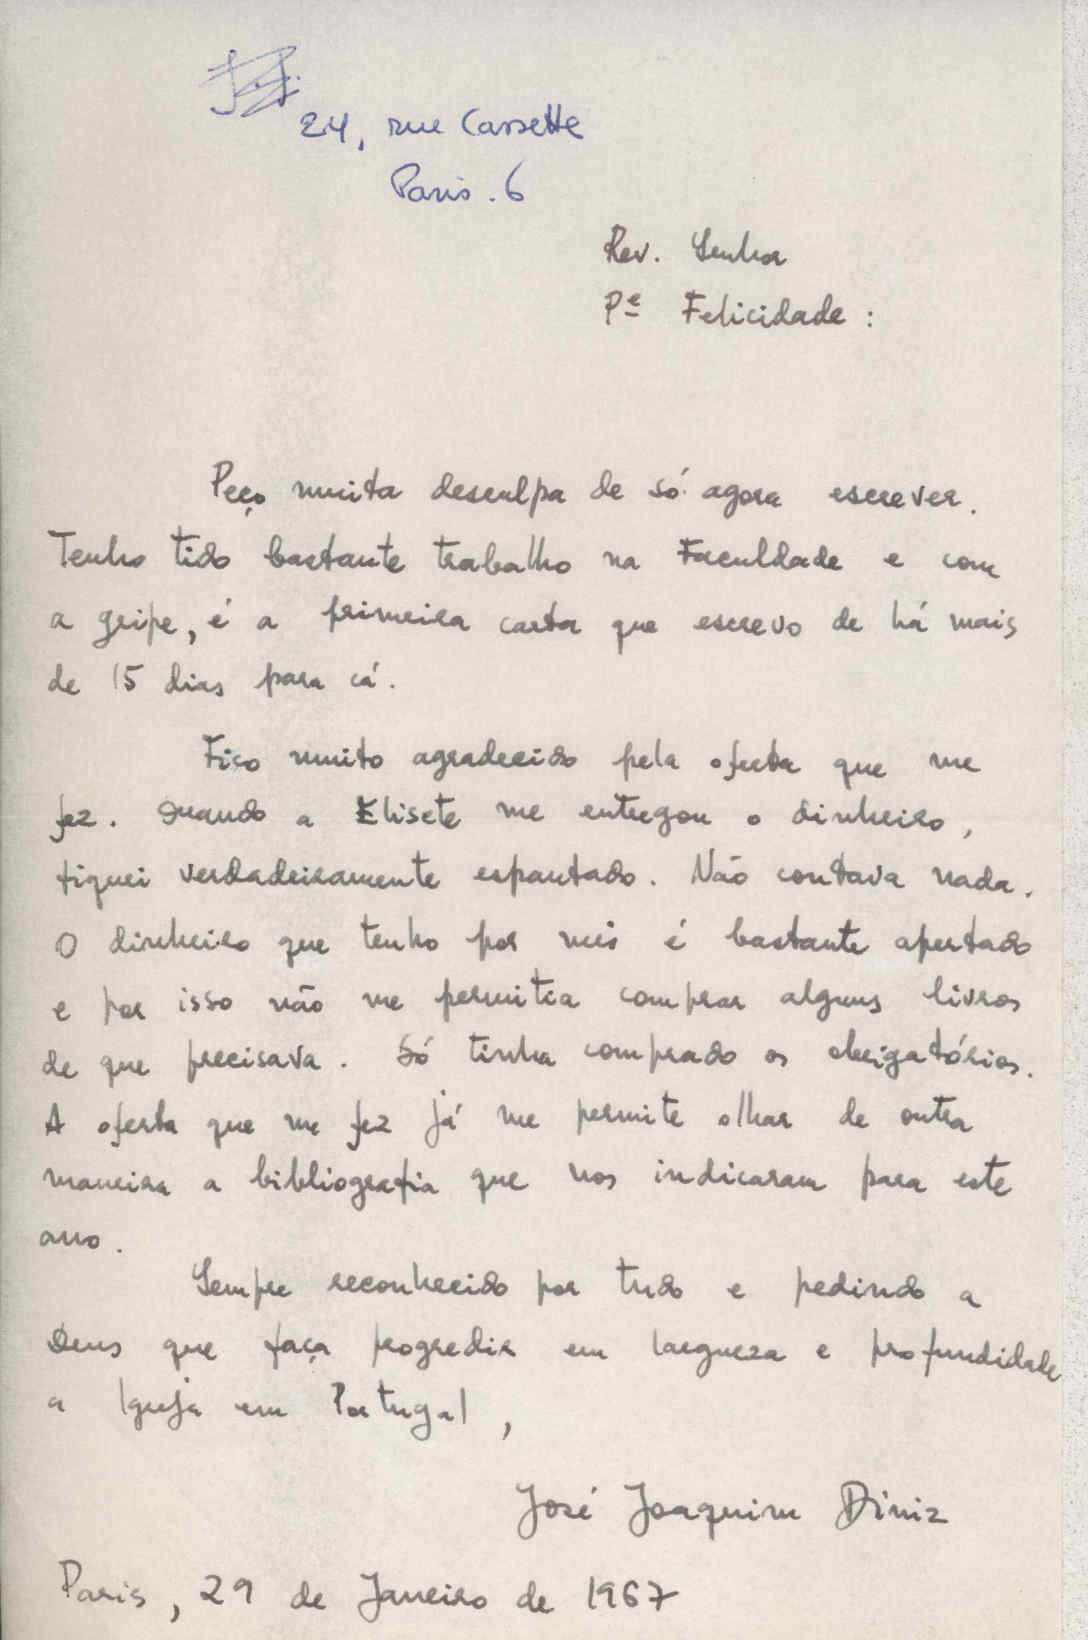 24, rue Cassette
Paris. 6
Rev. Senhor
Pe Felicidade :
Peço muita desculpa de só agora escrever.
Tenho tido bastante trabalho na Faculdade e com
a gripe, é a primeira carta que escrevo de há mais
de 15 dias para cá.
Fico muito agradecido pela oferta que me
fez. Quando a Elisete me entregou o dinheiro,
fiquei verdadeiramente espantado. Não contava nada.
O dinheiro que tenho por mês é bastante apertado
e por isso não me permitia comprar alguns livros
de que precisava. Só tinha comprado os obrigatórios.
A oferta que me fez já me permite olhar de outra
maneira a bibliografia que nos indicaram para este
ano.
Sempre reconhecido por tudo e pedindo a
Deus que faça progredir em largueza e profundidade
a Igreja em Portugal,
José Joaquim Diniz
Paris, 29 de Janeiro de 1967